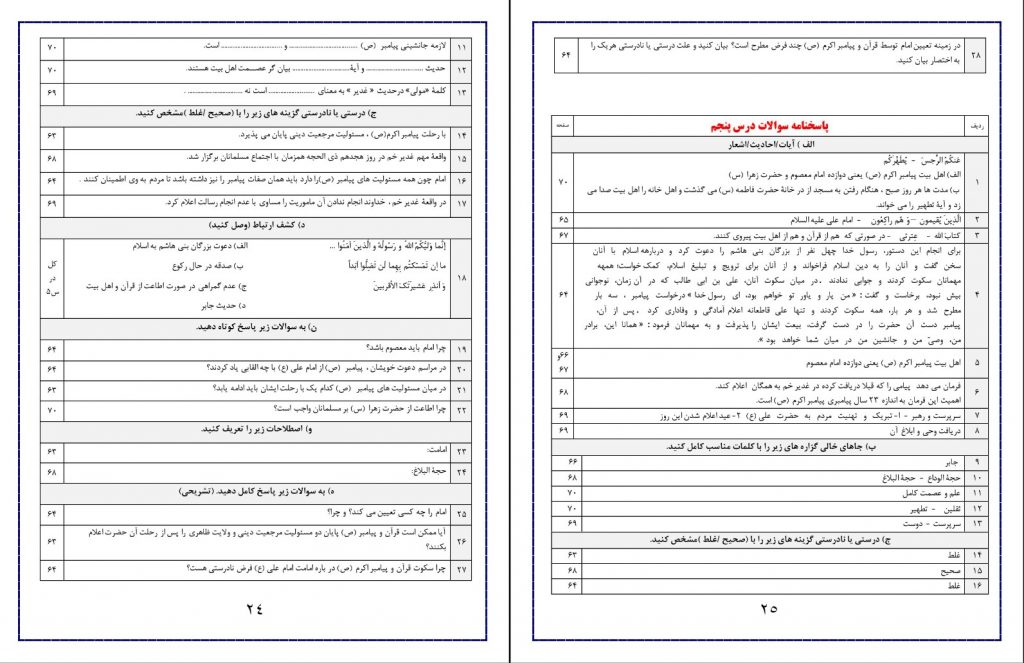 ۱۱ لازمه جانشینی پیامبر (ص) .......................... و .......................... است. ۷۰
۱۲ حدیث .......................... و آیهٔ .......................... بیان گر عصمت اهل بیت هستند. ۷۰
۱۳ کلمهٔ «مولی» درحدیث « غدیر » به معنای .......................... است نه .......................... . ۶۹
ج) درستی یا نادرستی گزینه های زیر را با (صحیح /غلط )مشخص کنید.
۱۴ با رحلت پیامبر اکرم(ص) ، مسئولیت مرجعیت دینی پایان می پذیرد. ۶۳
۱۵ واقعهٔ مهم غدیر خم در روز هجدهم ذی الحجه همزمان با اجتماع مسلمانان برگزار شد. ۶۸
۱۶ امام چون همه مسئولیت های پیامبر (ص)را دارد باید همان صفات پیامبر را نیز داشته باشد تا مردم به وی اطمینان کنند . ۶۴
۱۷ در واقعهٔ غدیر خم ، خداوند انجام ندادن آن ماموریت را مساوی با عدم انجام رسالت اعلام کرد. ۶۹
د) کشف ارتباط (وصل کنید)
۱۸ إنَّما وَلِيُّكُمُ اللهُ وَ رَسولُهُ وَ الَّذينَ آمَنُوا ... الف) دعوت بزرگان بنی هاشم به اسلام کل در س۵
ما إن تَمَسَّكتُم بِهِما لَن تَضِلُّوا أبَداً ب) صدقه در حال رکوع
وَ أنذِر عَشيرَتَكَ الأقرَبينَ ج) عدم گمراهی در صورت اطاعت از قرآن و اهل بیت
د) حدیث جابر
ن) به سوالات زیر پاسخ کوتاه دهید.
۱۹ چرا امام باید معصوم باشد؟ ۶۴
۲۰ در مراسم دعوت خویشان ، پیامبر (ص) از امام علی (ع) با چه القابی یاد کردند؟ ۶۴
۲۱ در میان مسئولیت های پیامبر (ص) کدام یک با رحلت ایشان باید ادامه یابد؟ ۶۳
۲۲ چرا اطاعت از حضرت زهرا (س) بر مسلمانان واجب است؟ ۷۰
و) اصطلاحات زیر را تعریف کنید.
۲۳ امامت: ۶۳
۲۴ حجة البلاغ: ۶۸
ه) به سوالات زیر پاسخ کامل دهید. (تشریحی)
۲۵ امام را چه کسی تعیین می کند؟ و چرا؟ ۶۴
۲۶ آیا ممکن است قرآن و پیامبر (ص) پایان دو مسئولیت مرجعیت دینی و ولایت ظاهری را پس از رحلت آن حضرت اعلام بکنند؟ ۶۳
۲۷ چرا سکوت قرآن و پیامبر اکرم (ص) در باره امامت امام علی (ع) فرض نادرستی هست؟ ۶۴
۲۴
۲۸ در زمینه تعیین امام توسط قرآن و پیامبر اکرم (ص) چند فرض مطرح است؟ بیان کنید و علت درستی یا نادرستی هریک را ۶۴
به اختصار بیان کنید.
ردیف پاسخنامه سوالات درس پنجم صفحه
الف ) آیات/احادیث/اشعار
۱ عَنكُمُ الرِّجسَ - يُطَهِّرَكُم ۷۰
الف) اهل بیت پیامبر اکرم (ص) یعنی دوازده امام معصوم و حضرت زهرا (س)
ب) مدت ها هر روز صبح ، هنگام رفتن به مسجد از در خانهٔ حضرت فاطمه (س) می گذشت و اهل خانه را اهل بیت صدا می
زد و آیهٔ تطهیر را می خواند.
۲ الَّذينَ يُقيمونَ – وَ هُم راكِعُونَ - امام علی علیه السلام ۶۵
۳ كتابَ الله - عِترَتی - در صورتی که هم از قرآن و هم از اهل بیت پیروی کنند. ۶۷
۴ برای انجام این دستور، رسول خدا چهل نفر از بزرگان بنی هاشم را دعوت کرد و درباره اسلام با آنان ۶۴
سخن گفت و آنان را به دین اسلام فراخواند و از آنان برای ترویج و تبلیغ اسلام، کمک خواست؛ همه
مهمانان سکوت کردند و جوابی ندادند . در میان سکوت آنان، علی بن ابی طالب که در آن زمان، نوجوانی
بیش نبود، برخاست و گفت : «من یار و یاور تو خواهم بود، ای رسول خدا »درخواست پیامبر ، سه بار
مطرح شد و هر بار، همه سکوت کردند و تنها علی قاطعانه اعلام آمادگی و وفاداری کرد . پس از آن،
پیامبر دست آن حضرت را در دست گرفت، بیعت ایشان را پذیرفت و به مهمانان فرمود : « همانا این، برادر
من، وصیّ من و جانشین من در میان شما خواهد بود ».
۵ اهل بیت پیامبر اکرم (ص) یعنی دوازده امام معصوم ۶۶و ۶۷
۶ فرمان می دهد پیامی را که قبلا دریافت کرده در غدیر خم به همگان اعلام کند. ۶۸
اهمیت این فرمان به اندازه ۲۳ سال پیامبری پیامبر اکرم (ص) است.
۷ سرپرست و رهبر - ۱- تبریک و تهنیت مردم به حضرت علی (ع) ۲- عید اعلام شدن این روز ۶۹
۸ دریافت وحی و ابلاغ آن ۶۹
ب) جاهای خالی گزاره های زیر را با کلمات مناسب کامل کنید.
۹ جابر ۶۶
۱۰ حجة الوداع - حجة البلاغ ۶۸
۱۱ علم و عصمت کامل ۷۰
۱۲ ثقلین - تطهیر ۷۰
۱۳ سرپرست - دوست ۶۹
ج) درستی یا نادرستی گزینه های زیر را با (صحیح /غلط )مشخص کنید.
۱۴ غلط ۶۳
۱۵ صحیح ۶۸
۱۶ غلط ۶۴
۲۵